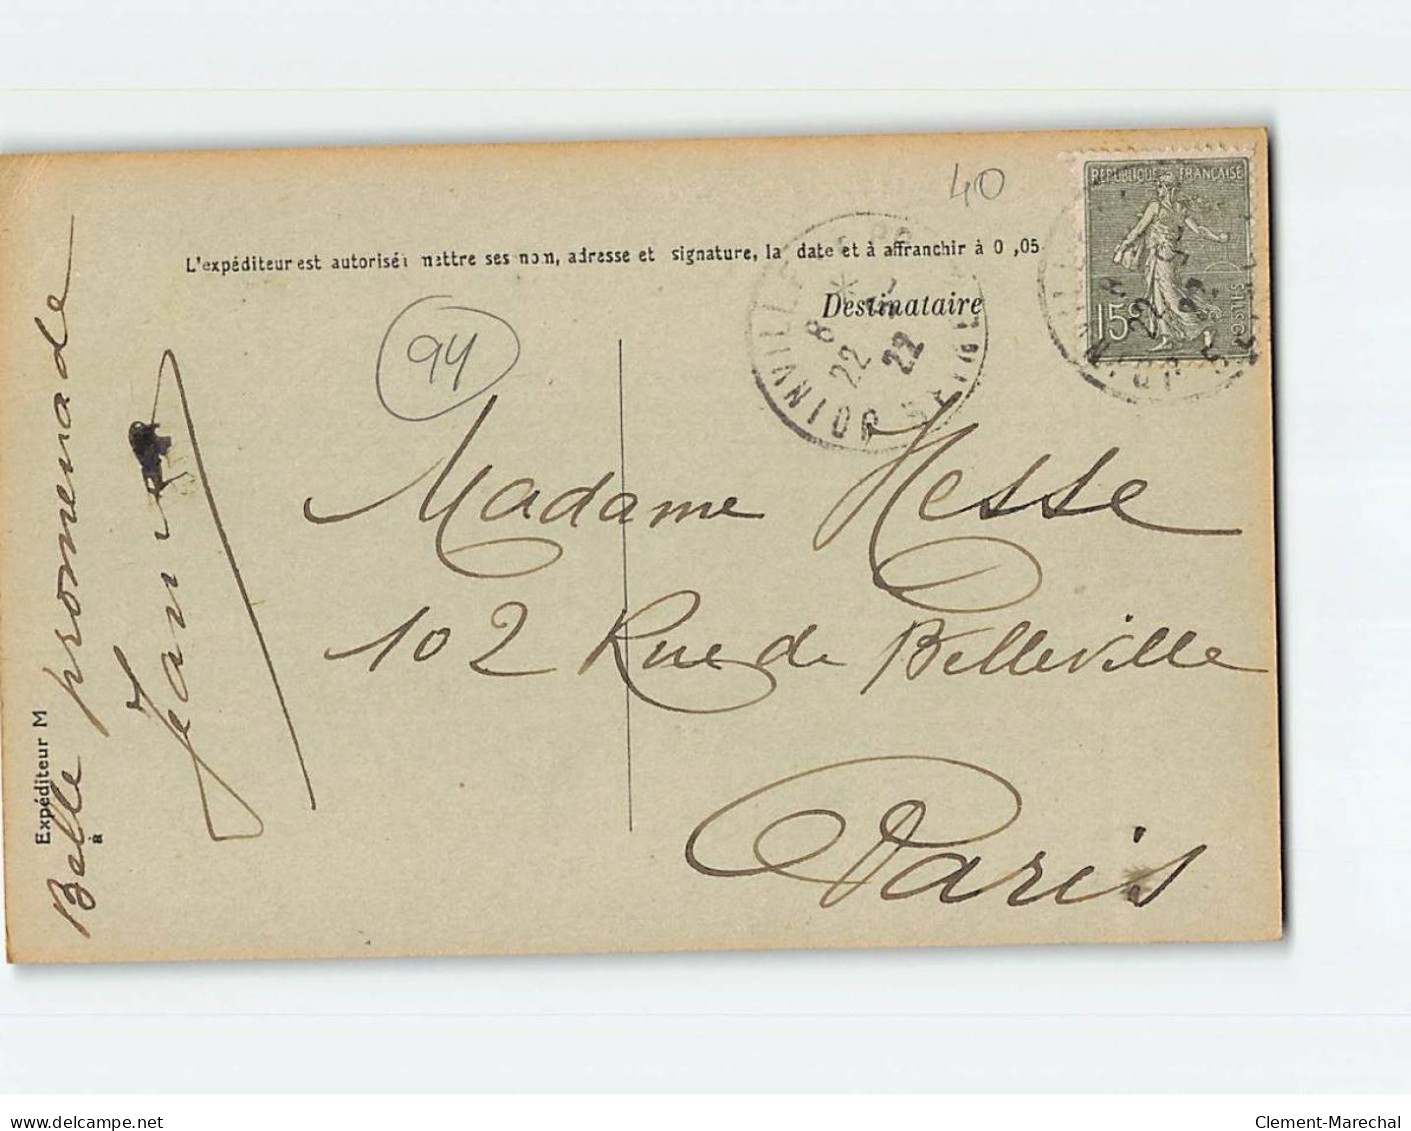 40
RÉPUBLIQUE FRANÇAISE
15c
L'expéditeur est autorisé à mettre ses nom, adresse et signature, la date et à affranchir à 0,05
Destinataire
JOINVILLE
SEINE
8
22
22
94
Madame Hesse
102 Rue de Belleville
Paris
Expéditeur M
à
Belle promenade
Jeanne
delcampe.net
Clement-Marechal